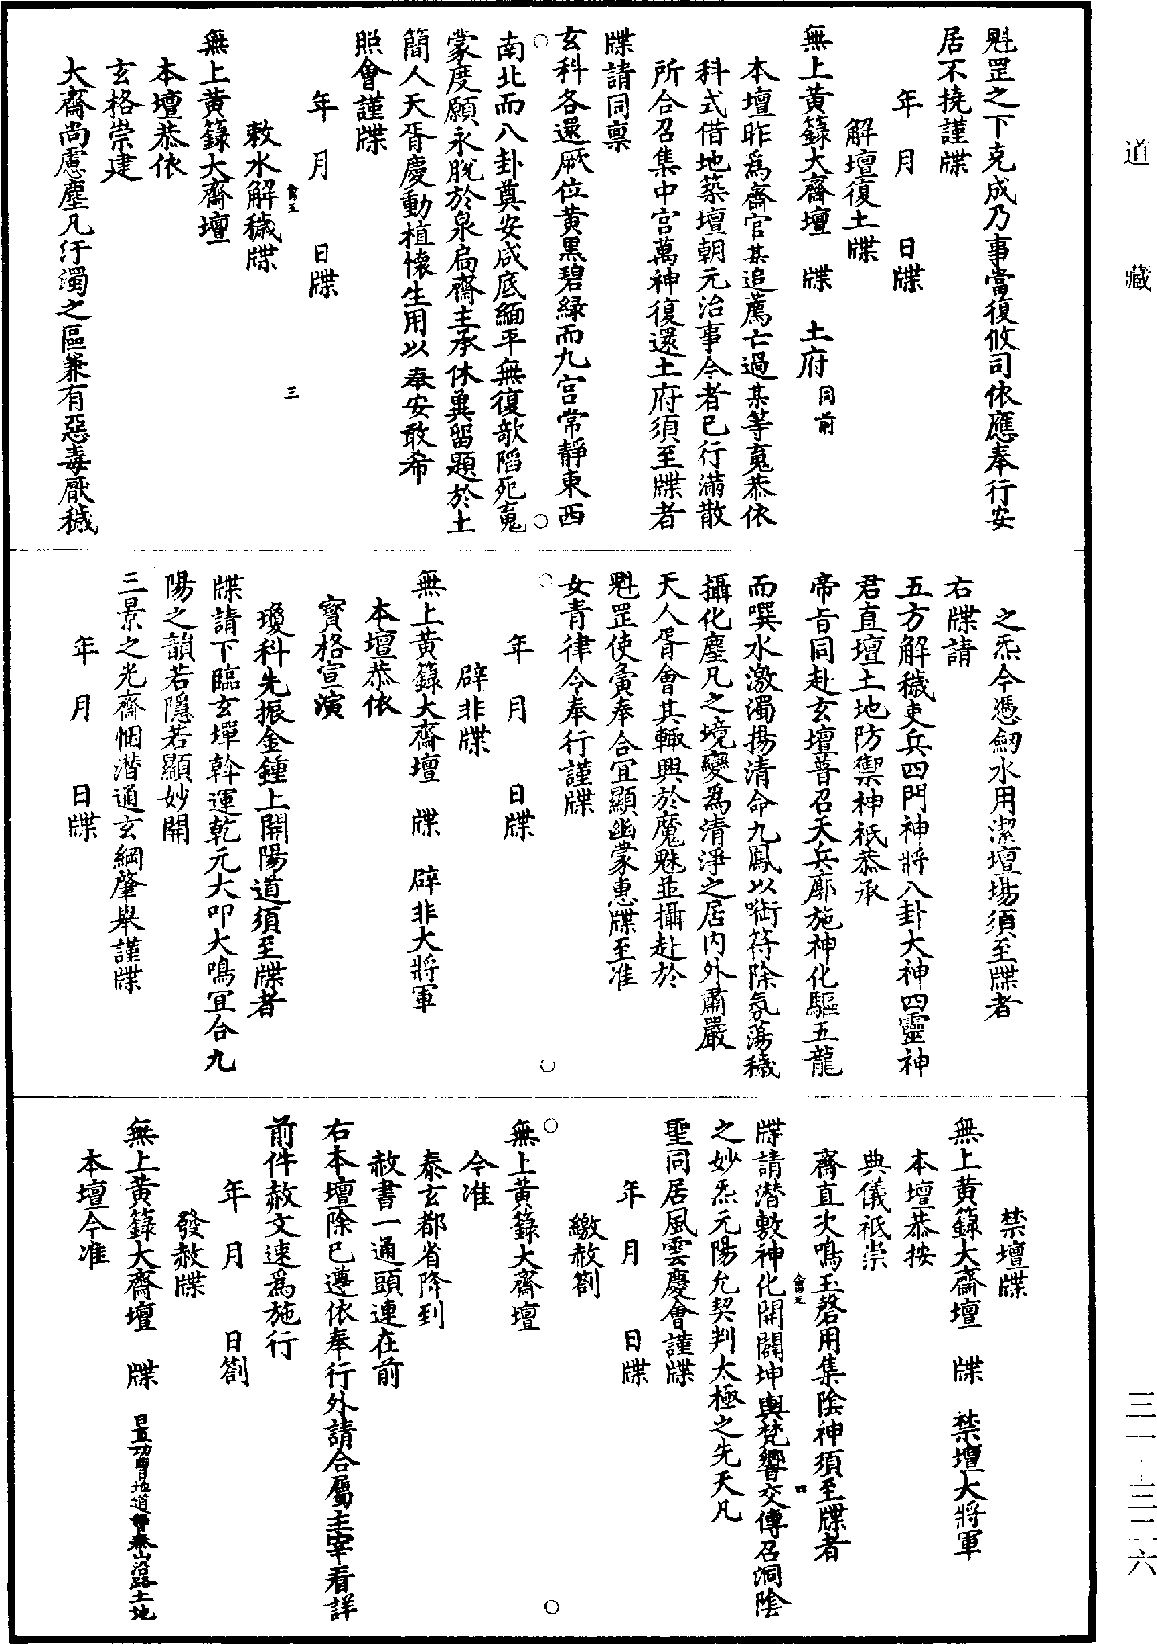 道藏
魁罡之下克成乃事當復攸司依應奉行安
居不撓謹牒
年　月　日牒
解壇復土牒
無上黃籙大齋壇　牒　土府同前
本壇昨爲齋官某追薦亡過某等䰟恭依
科式借地築壇朝元治事今者已行滿散
所合召集中宮萬神復還土府須至牒者
牒請同稟
玄科各還厥位黃黑碧綠而九宮常靜東西
南北而八卦奠安咸底緬平無復敧陷死䰟
蒙度願永脫於泉扃齋主承休冀留題於土
簡人天胥慶動植懷生用以奉安敢希
照會謹牒
年　月　日牒
敕水解穢牒
三
無上黃籙大齋壇
本壇恭依
玄格崇建
大齋尚慮塵凡汙濁之區兼有惡毒厭穢
之炁今憑劒水用潔壇場須至牒者
右牒請
五方解穢吏兵四門神將八卦大神四靈神
君直壇土地防禦神祇恭承
帝旨同赴玄壇普召天兵廓施神化驅五龍
而噀水激濁揚清命九鳳以啣符除氛蕩穢
攝化塵凡之境變爲清淨之居內外肅嚴
天人胥會其輙興於魔魅並攝赴於
魁罡使夤奉合宜顯幽蒙惠牒至准
女青律令奉行謹牒
年　月　日牒
辟非牒
無上黃籙大齋壇　牒　辟非大將軍
本壇恭依
寶格宣演
瓊科先振金鍾上開陽道須至牒者
牒請下臨玄墠斡運乾元大叩大鳴宜合九
陽之韻若隱若顯妙開
三景之光齋悃潛通玄綱肇舉謹牒
年　月　日牒
禁壇牒
無上黃籙大齋壇　牒　禁壇大將軍
本壇恭按
典儀祇崇
齋直次鳴玉磬用集陰神須至牒者
四
牒請潛敷神化開闢坤輿梵響交傳召洞陰
之妙炁元陽允契判太極之先天凡
聖同居風雲慶會謹牒
年　月　日牒
繳赦劄
無上黃籙大齋壇
今准
泰玄都省降到
赦書一通頭連在前
右本壇除已遵依奉行外請合屬主宰看詳
前件赦文速爲施行
年　月　日劄
發赦牒
無上黃籙大齋壇　牒　日直功曹地道神泰山沿路土地
本壇今准
三一·三二六